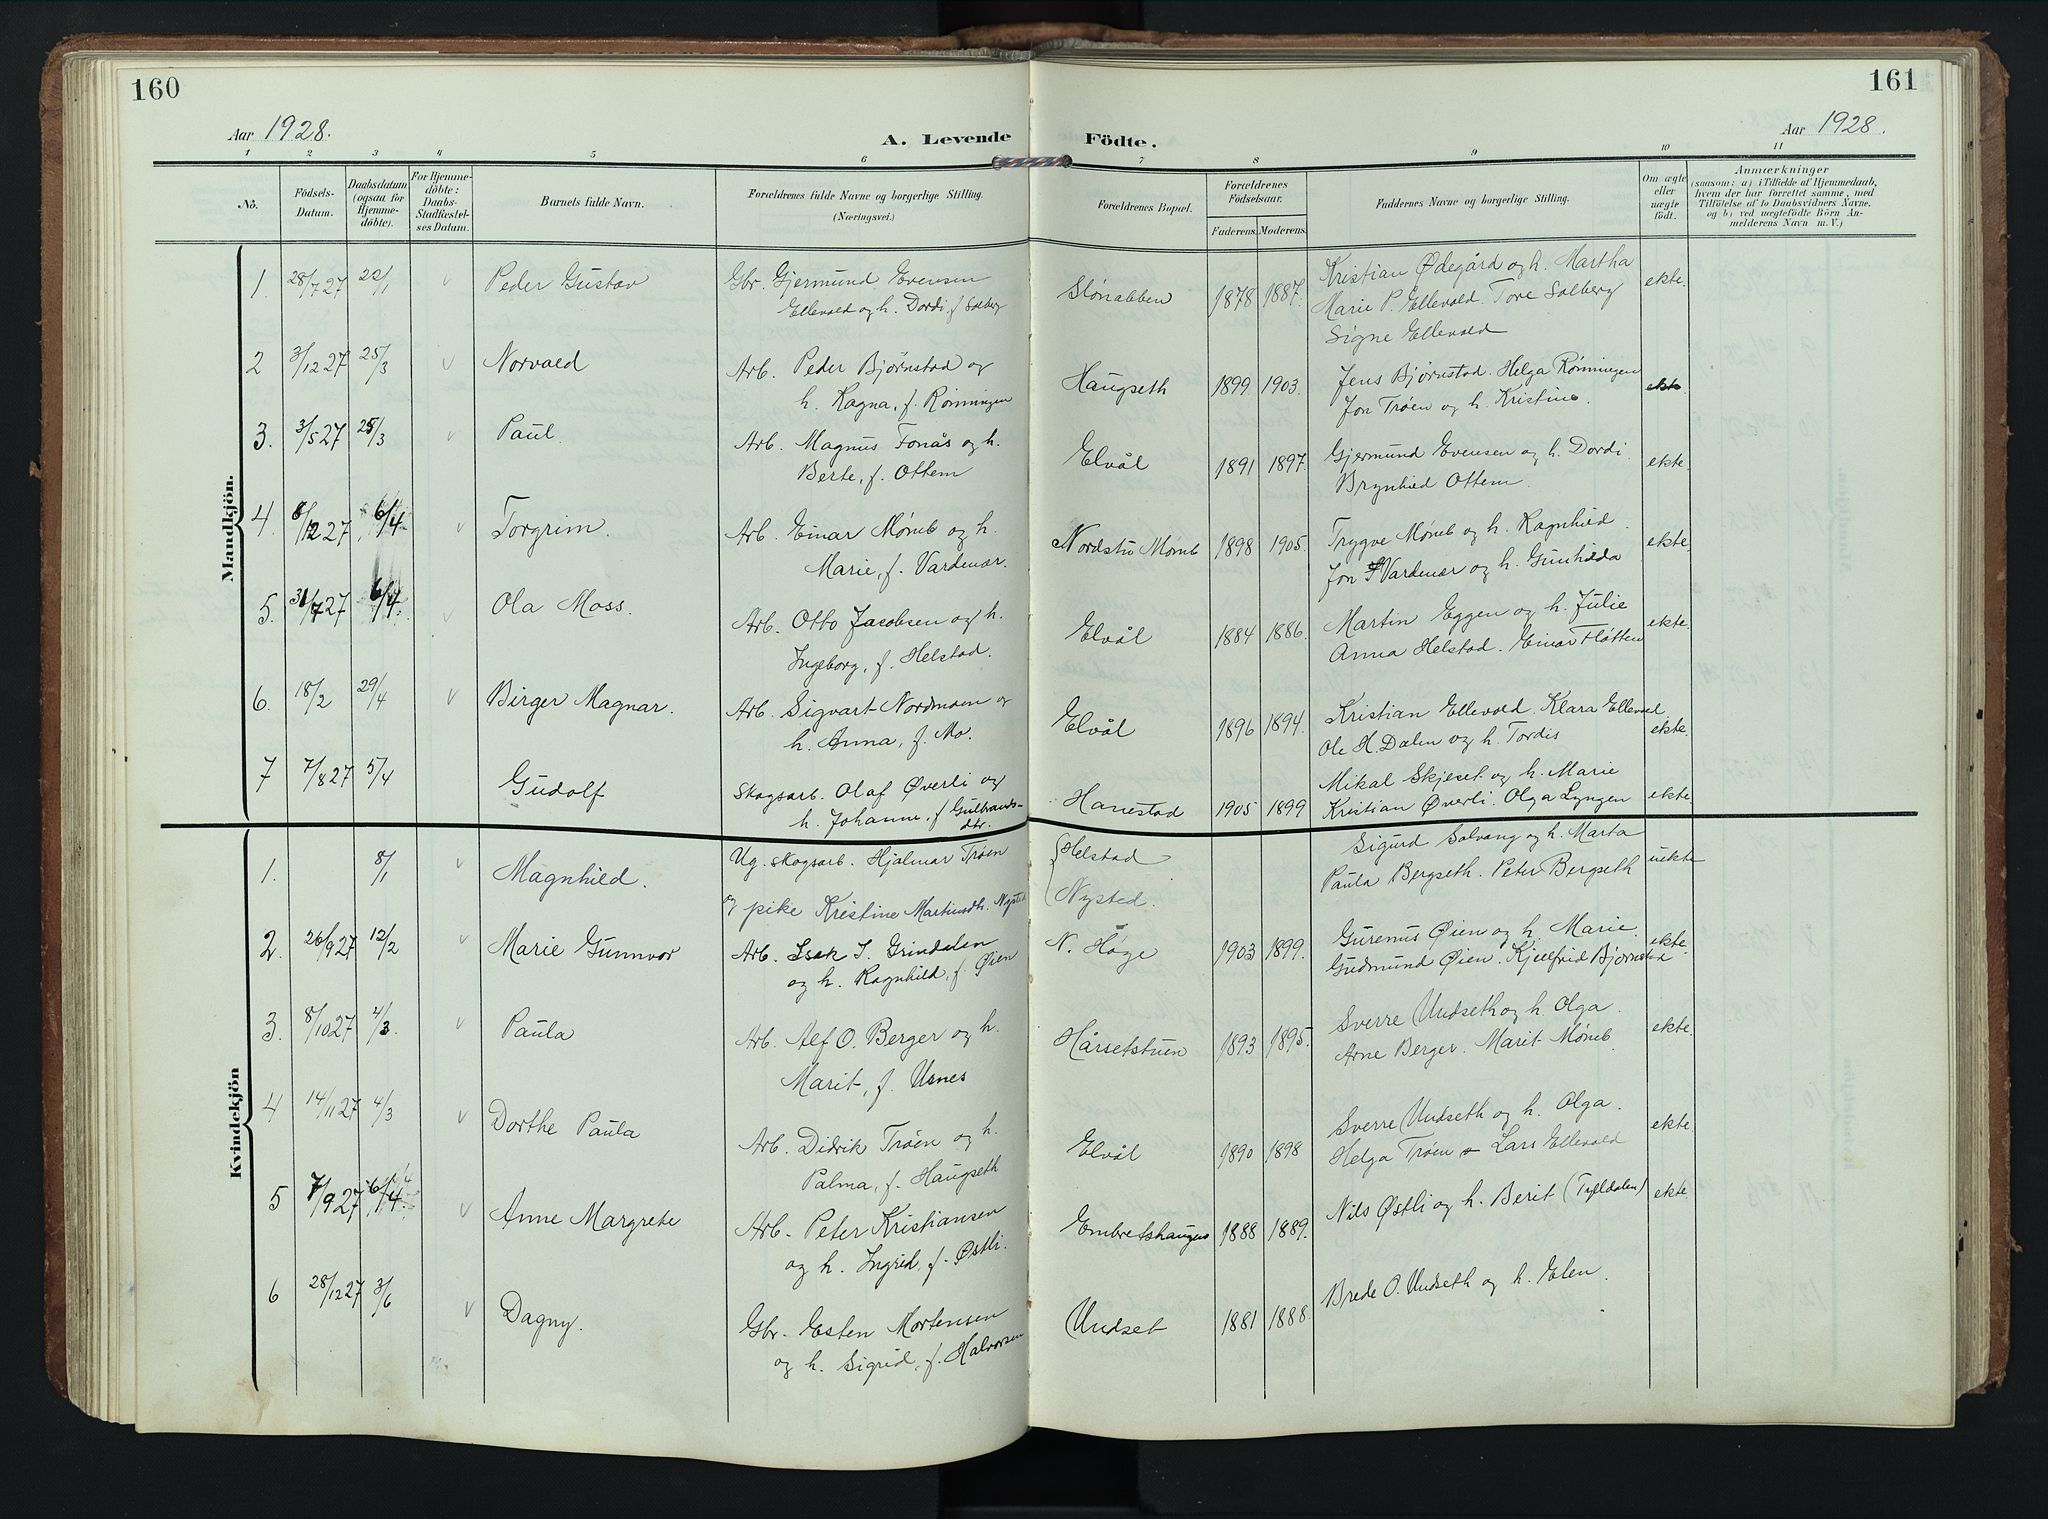 160
161
Aar 1928.
A. Levende Födte.
Aar 1928.
1 2 3 4 5 6 7 8 9 10 11
No.
Födsels-Datum.
Daabsdatum (ogsaa for Hjemme-döbte).
For Hjemme-döbte: Daabs-Stadfæstel-ses Datum.
Barnets fulde Navn.
Forældrenes fulde Navne og borgerlige Stilling. (Næringsvei.)
Forældrenes Bopæl.
Forældrenes Födselsaar.
Faderens. Moderens.
Faddernes Navne og borgerlige Stilling.
Om ægte eller uægte födt.
Anmærkninger
(saasom: a) i Tilfælde af Hjemmedaab, hvem der har forrettet samme, med Tilföielse af to Daabsvidners Navne. og b) ved uægtefödte Börn An-melderens Navn m. V.)
Mandkjön.
1. 28/7 27 22/1 v Peder Gustav Gbr. Gjermund Evensen Slónabben 1878 1887. Kristian Ødegård og h. Martha ekte.
Ellevold og h. Dordi, f. Solberg Marie P. Ellevold. Tore Solberg
Signe Ellevold
2 3/12 27 25/3 v Norvald Arb. Peder Bjørnstad og Haugseth 1899 1903. Jens Bjørnstad. Helga Rønningen ekte
h. Ragna, f. Rønningen Jon Trøen og h. Kristine.
3. 3/5 27 25/3 v Paul. Arb. Magnus Fonås og h. Elvål 1891 1897. Gjermund Evensen og h. Dordi. ekte.
Berte, f. Ottem Brynhild Ottem.
4. 8/12 27 6/4. v Torgrim. Arb. Einar Møneb og h. Nordstu Møneb 1898 1905. Trygve Møneb og h. Ragnhild. ekte.
Marie, f. Vardenær. Jon Vardenær og h. Gunhilda
5. 31/7 27 6/4. v Ola Moss. Arb. Otto Jacobsen og h. Elvål 1884 1886. Martin Eggen og h. Julie ekte.
Ingeborg, f. Helstad. Anna Helstad. Einar Fløtten
6. 18/2 29/4 v Birger Magnar. Arb. Sigvart Nordmoen og Elvål 1896 1894. Kristian Ellevold. Klara Ellevold ekte.
h. Anna, f. Mo. Ole H. Dalen og h. Tordis
7 7/8 27 5/4 Gudolf Skogsarb. Olaf Øverli og Hanestad 1905 1899 Mikal Skjeset og h. Marie ekte.
h. Johanne, f. Gulbrands-dtr. Kristian Øverli. Olga Lyngen
Kvindekjön
1. 8/1 v Magnhild. Ug. skogsarb. Hjalmar Trøen Helstad Sigurd Solvang og h. Marta uekte
og pike Kristine Martinsdtr. Nysted Nysted. Paula Bergseth. Peter Bergseth
2. 26/9 27 12/2 v Marie Gunnvor Arb. Isak S. Grindalen N. Høge 1903 1899. Gurenus Øien og h. Marie. ekte
og h. Ragnhild, f. Øien Gudmund Øien. Kjellfrid Bjørnstad
3. 8/10 27 4/3. v Paula Arb. Alf O. Berger og h. Hårsetstuen 1893 1895. Sverre Undseth og h. Olga. ekte.
Marit, f. Usnes Arne Berger. Marit Møneb.
4 14/11 27 4/3 v Dorthe Paula Arb. Didrik Trøen og h. Elvål 1890 1898 Sverre Undseth og h. Olga. ekte.
Palma, f. Haugseth Helga Trøen Lars Ellevold
5 7/9 27 6/4. v Anne Margrete Arb. Peter Kristiansen Embretshaugen 1888 1889. Nils Østli og h. Berit (Tylldalen) ekte.
og h. Ingrid, f. Østli.
6 28/12 27 3/6 v Dagny. Gbr. Esten Mortensen Undset 1881 1888. Brede O. Undseth og h. Elen.
og h. Sigrid, f. Halvorsen